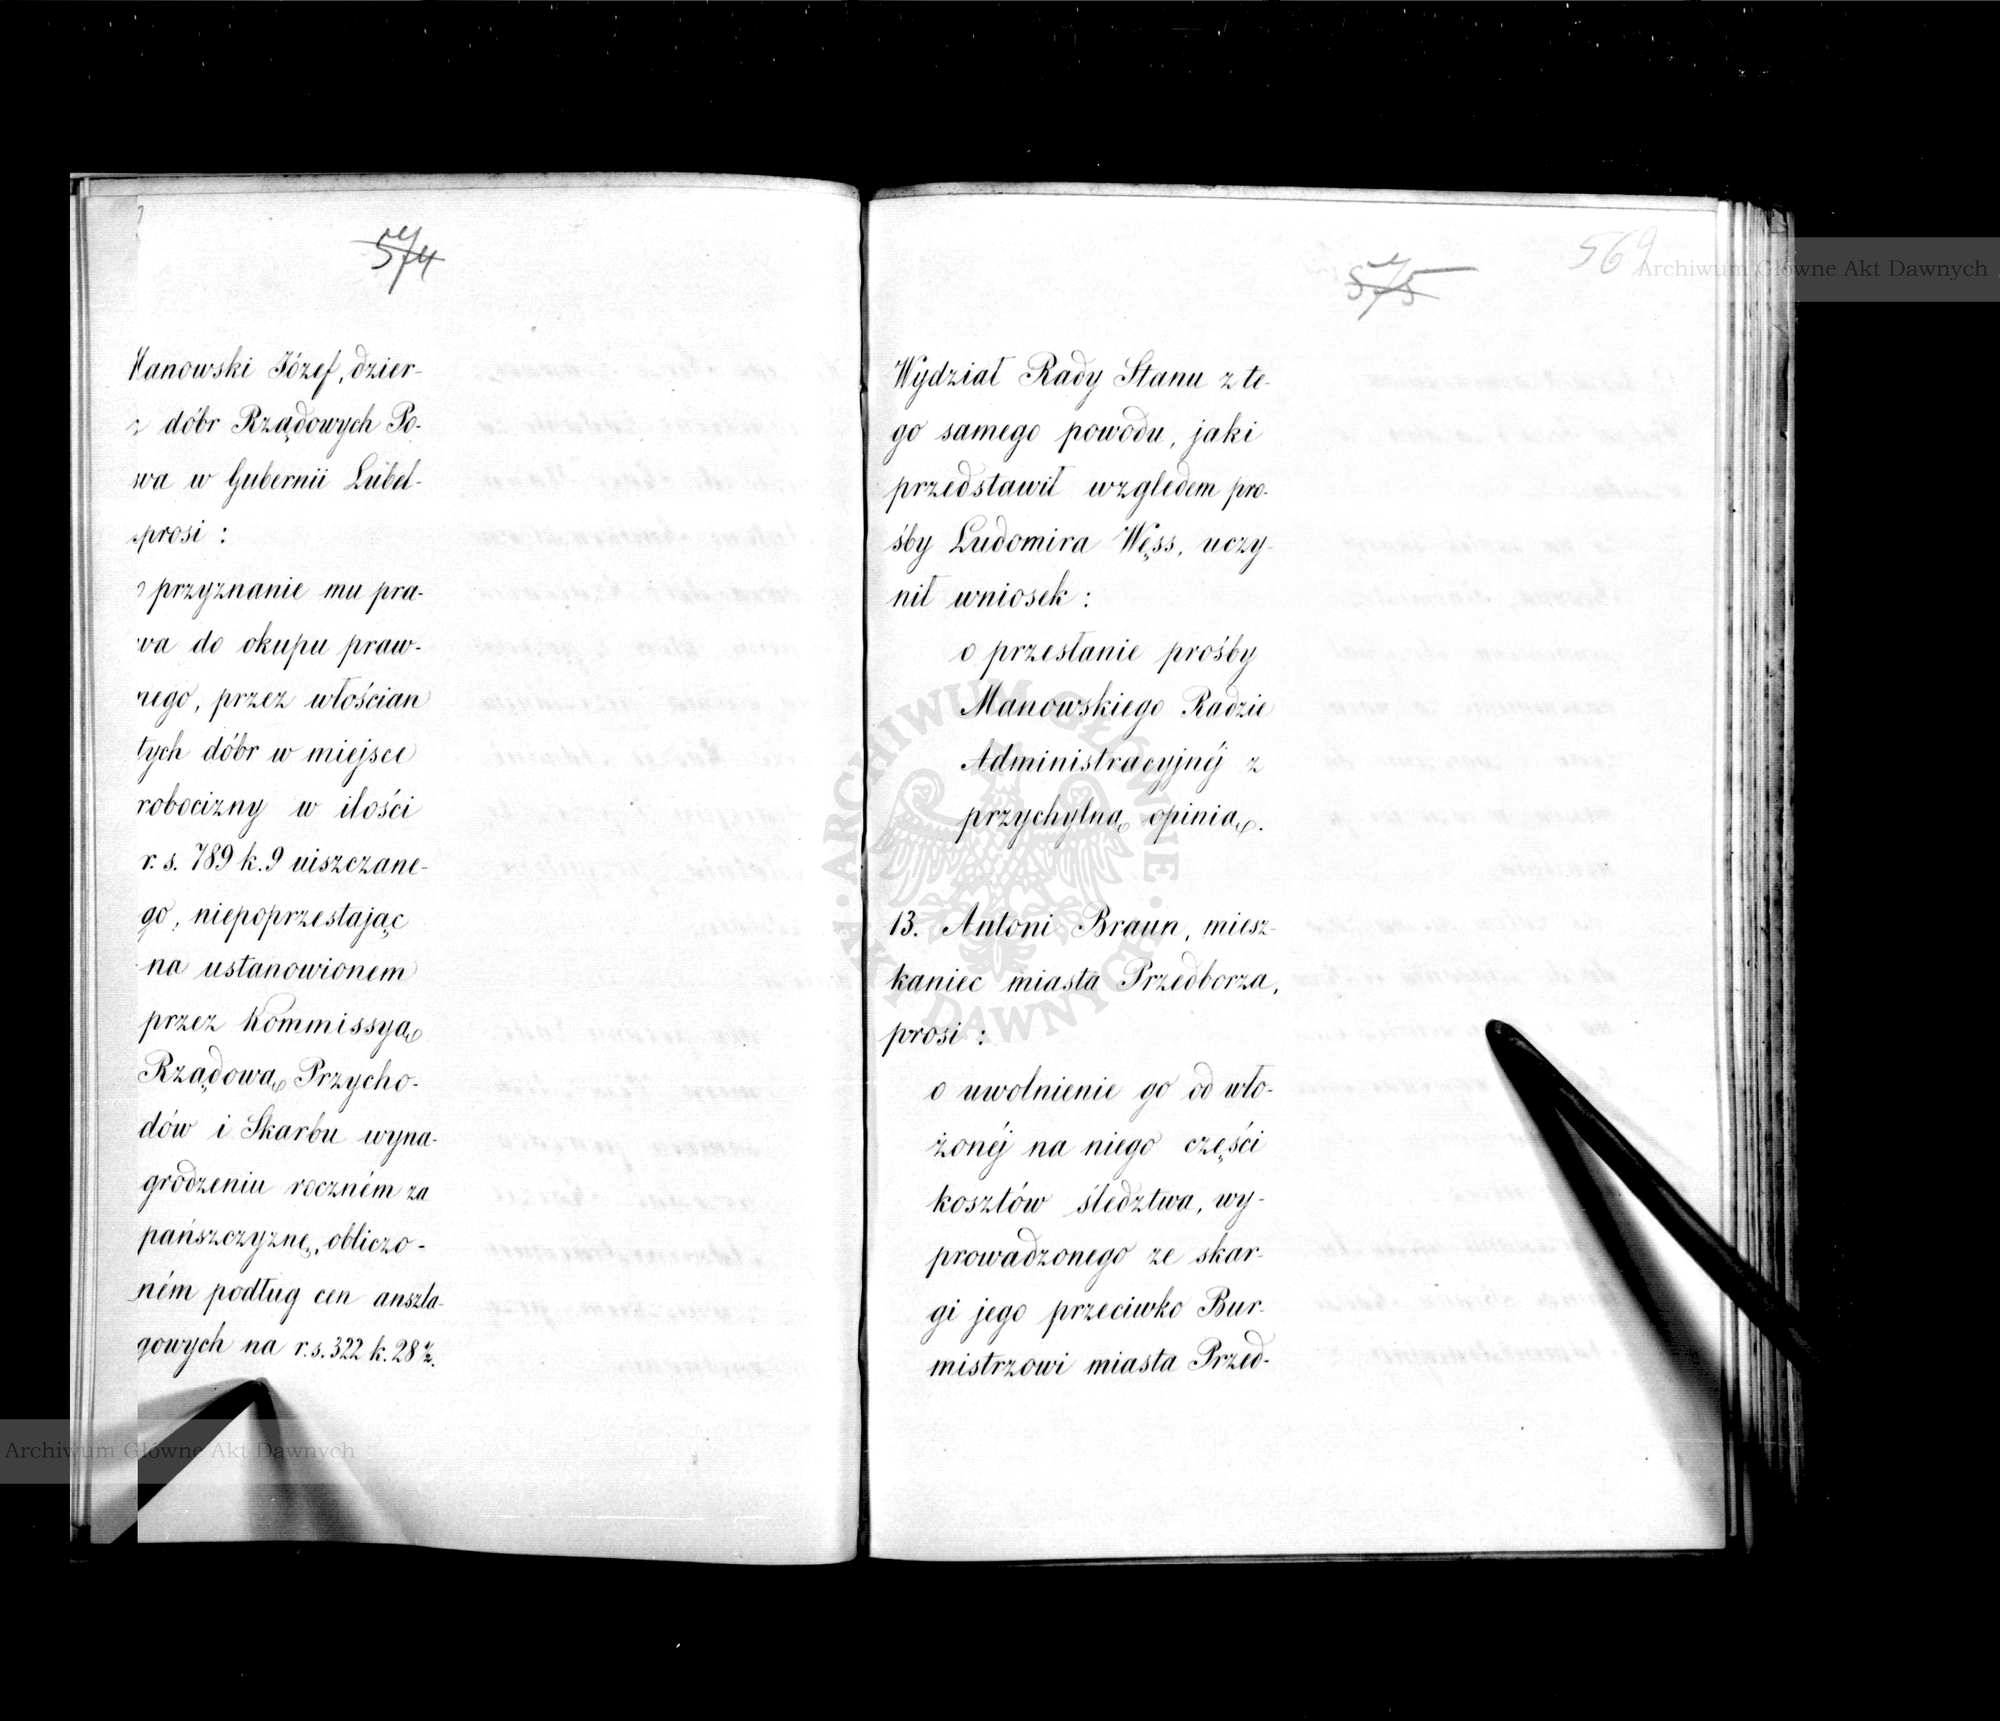 574
Manowski Józef, dzier-
dóbr Rządowych Po-
wa w Gubernii Lubel-
prosi :
o przyznanie mu pra-
wa do okupu praw-
nego, przez włościan
tych dóbr w miejsce
robocizny w ilości
r. s. 789 k. 9 uiszczane-
go, niepoprzestając
na ustanowionem
przez Kommissyą
Rządową Przycho-
dów i Skarbu wyna-
grodzeniu roczném za
pańszczyznę, obliczo-
ném podług cen anszla-
gowych na r. s. 322 k. 28
575
569
Wydział Rady Stanu z te-
go samego powodu, jaki
przedstawił względem pro-
śby Ludomira Węss, uczy-
nił wniosek :
o przesłanie prośby
Manowskiego Radzie
Administracyjnéj z
przychylną opinią.
13. Antoni Braun, miesz-
kaniec miasta Przedborza,
prosi :
o uwolnienie go od wło-
żonéj na niego części
kosztów śledztwa, wy-
prowadzonego ze skar-
gi jego przeciwko Bur-
mistrzowi miasta Przed-
Archiwum Główne Akt Dawnych
Archiwum Główne Akt Dawnych
ARCHIWUM GŁÓWNE AKT DAWNYCH